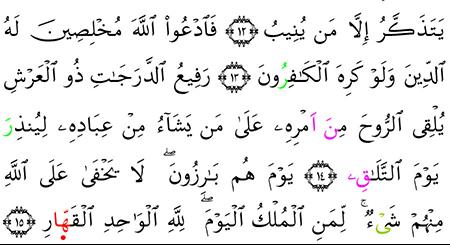 يَتَذَكَّرُ إِلَّا مَن يُنِيبُ ﴿١٢﴾ فَٱدْعُوا۟ ٱللَّهَ مُخْلِصِينَ لَهُ
ٱلدِّينَ وَلَوْ كَرِهَ ٱلْكَٰفِرُونَ ﴿١٣﴾ رَفِيعُ ٱلدَّرَجَٰتِ ذُو ٱلْعَرْشِ
يُلْقِى ٱلرُّوحَ مِنَ اَمْرِهِۦ عَلَىٰ مَن يَشَآءُ مِنْ عِبَادِهِۦ لِيُنذِرَ
يَوْمَ ٱلتَّلَٰقِۦ ﴿١٤﴾ يَوْمَ هُم بَٰرِزُونَ ۖ لَا يَخْفَىٰ عَلَى ٱللَّهِ
مِنْهُمْ شَىْءٌ ۚ لِّمَنِ ٱلْمُلْكُ ٱلْيَوْمَ ۖ لِلَّهِ ٱلْوَٰحِدِ ٱلْقَهَّارِ ﴿١٥﴾